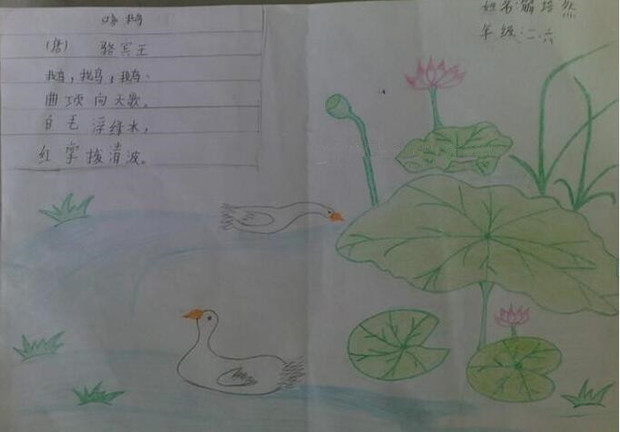 咏鹅
(唐) 骆宾王
鹅,鹅,鹅、
曲项向天歌。
白毛浮绿水,
红掌拨清波。
姓名:解培然
年级:二.六